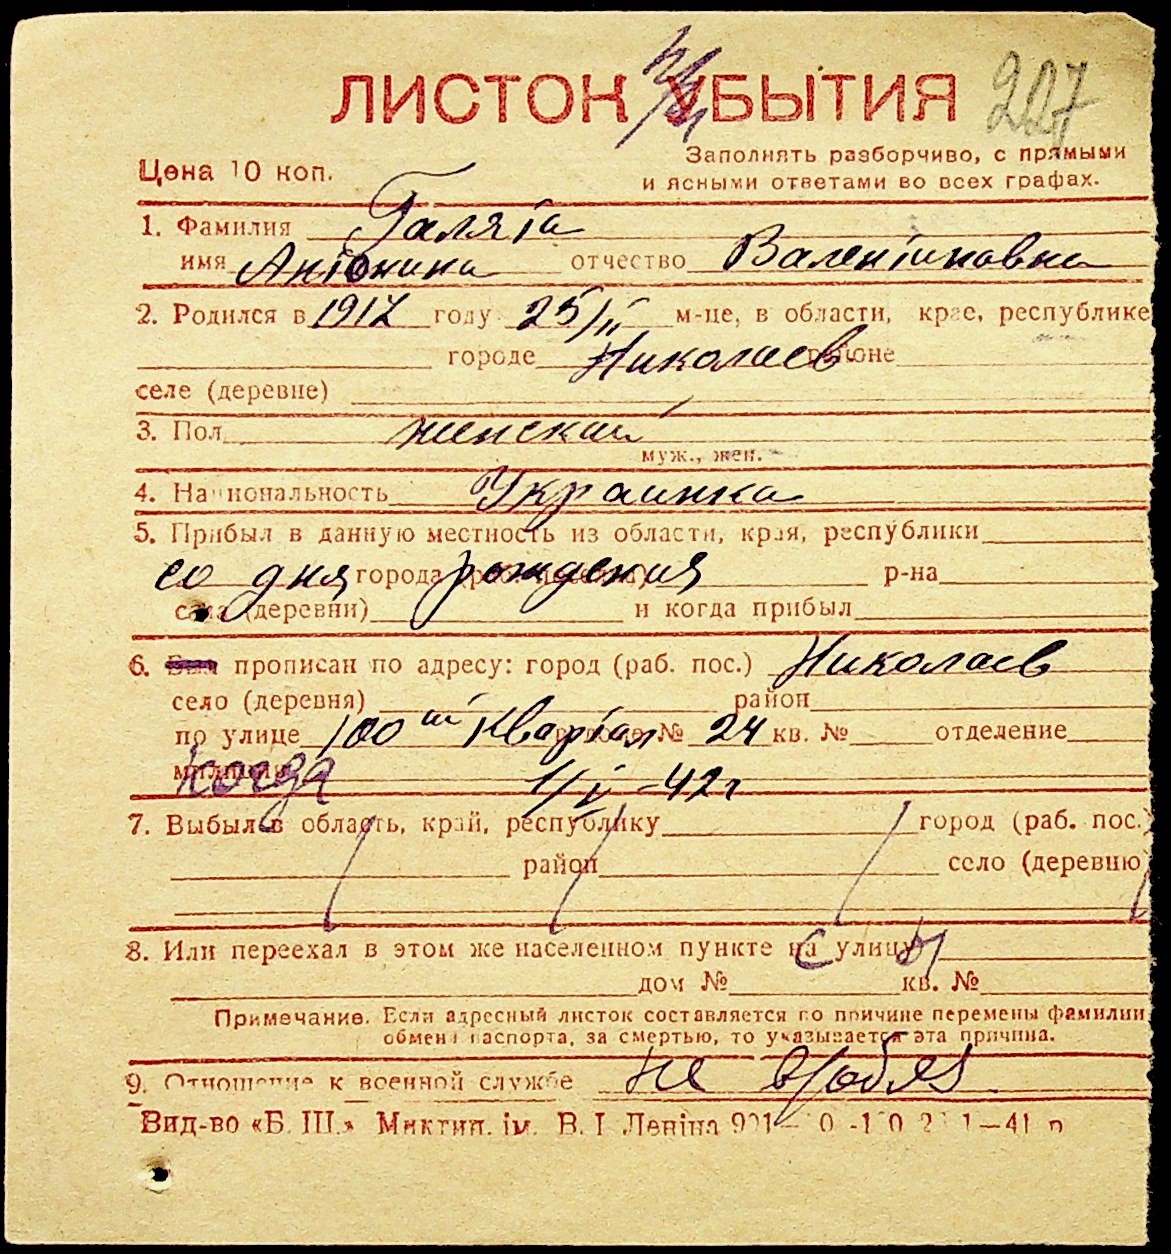 ЛИСТОК УБЫТИЯ 227
Заполнять разборчиво, с прямыми
Цена 10 коп.
и ясными ответами во всех графах.
1. Фамилия Галята
имя Антонина отчество Валентиновна
2. Родился в 1917 году 25/II м-це, в области, крае, республике
городе Николаев районе
селе (деревне)
3. Пол женский
муж., жен.
4. Национальность Украинка
5. Прибыл в данную местность из области, края, республики
со дня города рождения р-на
села (деревни) и когда прибыл
6. Был прописан по адресу: город (раб. пос.) Николаев
село (деревня) район
по улице 100 ый Квартал № 24 кв. № отделение
милиции когда 1/V-42 г
7. Выбыл в область, край, республику город (раб. пос.)
район село (деревню
8. Или переехал в этом же населенном пункте на улицу
дом № кв. №
Примечание. Если адресный листок составляется по причине перемены фамилии
обмена паспорта, за смертью, то указывается эта причина.
9. Отношение к военной службе не
Вид-во «Б. Ш.» Миктип. ім. В. І Леніна